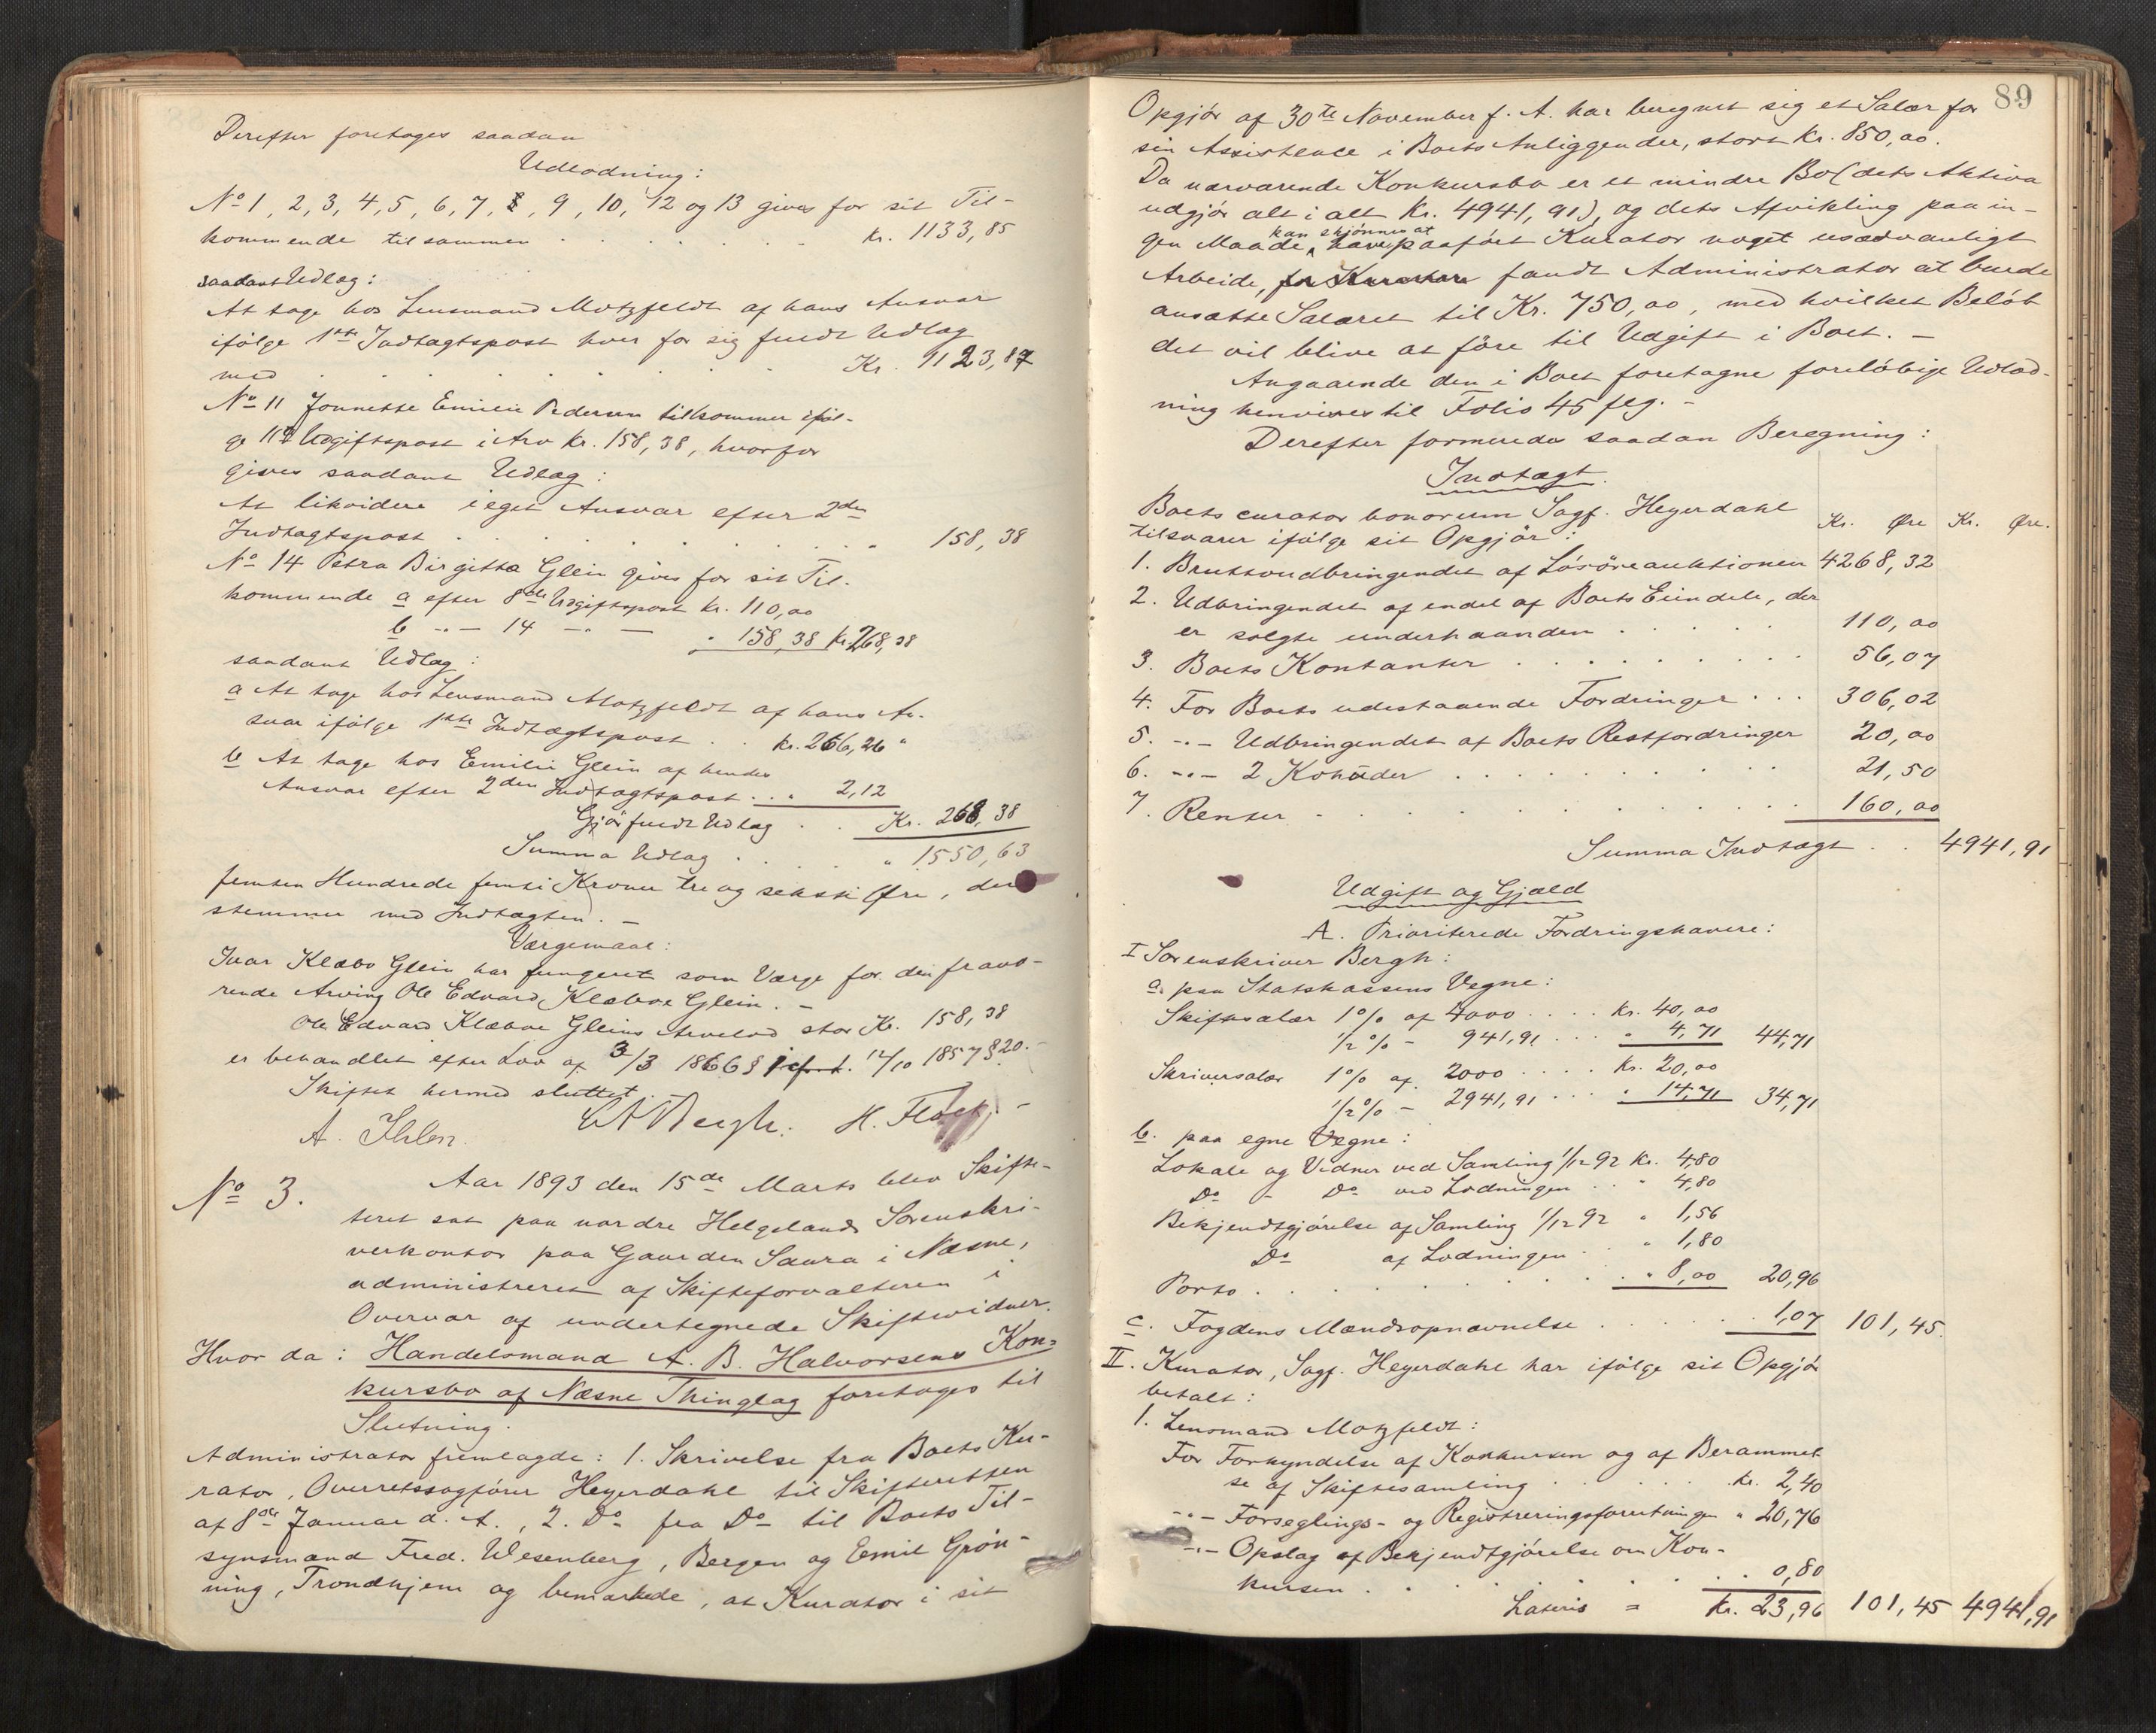 Derefter foretoges saadan
Udlodning:
No 1, 2, 3, 4, 5, 6, 7, 8, 9, 10, 12 og 13 gives for sit Til-
kommende tilsammen . . . . . . . Kr. 1133,85
saadant Udlæg:
At tage hos Lensmand Motzfeldt af hans Ansvar
ifölge 1ste Indtægtspost hver for sig fuldt Udlæg
med . . . . . . . . . Kr. 1123,87
No 11 Jonnette Emilie Pedersen tilkommer iföl-
ge 11te Udgiftspost i Arv Kr. 158,38, hvorfor
gives saadant Udlæg:
At likvidere i eget Ansvar efter 2den
Indtægtspost . . . . . . . . . " 158,38
No 14 Petra Birgitta Glein gives for sit Til-
kommende a efter 8de Udgiftspost Kr. 110,00
b -"- 14 -"- — " 158,38 Kr. 268,38
saadant Udlæg:
a At tage hos Lensmand Motzfeldt af hans An-
svar ifölge 1ste Indtægtspost . . Kr. 266,26 "
b At tage hos Emilie Glein af hendes
Ansvar efter 2den Indtægtspost . . " 2,12
Gjör fuldt Udlæg . . Kr. 268,38
Summa Udlæg . . . . . " 1550,63
femten Hundrede femti Kroner tre og seksti Øre, der
stemmer med Indtægten. —
Værgemaal:
Ivar Klæbo Glein har fungeret som Værge for den fravæ-
rende Arving Ole Edvard Klæboe Glein. —
Ole Edvard Klæboe Gleins Arvelod stor Kr. 158,38
er behandlet efter Lov af 3/3 1866 § 1 cfr. L. 12/10 1857 § 20. —
Skiftet hermed sluttet. —
A. Ihlen. Bergh. H. Flack. —
No 3. Aar 1893 den 15de Marts blev Skifte-
teret sat paa nordre Helgelands Sorenskri-
verkontor paa Gaarden Saura i Næsne,
administreret af Skifteforvalteren i
Overvær af undertegnede Skiftevidner.
Hvor da: Handelsmand A. B. Halvorsens Kon-
kursbo af Næsne Thinglag foretoges til
Slutning.
Administrator fremlagde: 1. Skrivelse fra Boets Ku-
rator, Overretssagförer Heyerdahl til Skifteretten
af 8de Januar d. A., 2. Do fra Do til Boets Til-
synsmænd Fred. Wesenberg, Bergen og Emil Grön-
ning, Trondhjem og bemærkede, at Kurator i sit
89
Opgjör af 30te November f. A. har beregnet sig et Salær for
sin Assistence i Boets Anliggender, stort Kr. 850,00.
Da nærværende Konkursbo er et mindre Bo (dets Aktiva
udgjör alt i alt Kr. 4941,91), og dets Afvikling paa in-
kan skjönnes at
gen Maade have paafört Kurator noget usædvanligt
Arbeide, fandt Administrator at burde
ansætte Salæret til Kr. 750,00, med hvilket Belöb
det vil blive at före til Udgift i Boet. —
Angaaende den i Boet foretagne forelöbige Udlod-
ning henvises til Folio 45 flg. —
Derefter formeredes saadan Beregning:
Indtægt.
Boets curator bonorum Sagf. Heyerdahl
tilsvarer ifölge sit Opgjör: Kr. Øre Kr. Øre.
1. Bruttoudbringendet af Lösöreauktionen 4268,32
2. Udbringendet af endel af Boets Eiendele, der
er solgte underhaanden . . . . . 110,00
3. Boets Kontanter . . . . . . . . . 56,07
4. For Boets udestaaende Fordringer . . . 306,02
5. -"- Udbringendet af Boets Restfordringer 20,00
6. -"- 2 Kohuder . . . . . . . . . 21,50
7. Renter . . . . . . . . . . . 160,00
Summa Indtægt . . 4941,91
Udgift og Gjæld
A. Prioriterede Fordringshavere:
I Sorenskriver Bergh:
a. paa Statskassens Vegne:
Skiftesalær 1% af 4000 . . . . Kr. 40,00
1/2% - 941,91 . . . " 4,71 44,71
Skriversalær 1% af 2000 . . . . Kr. 20,00
1/2% - 2941,91 . . . " 14,71 34,71
b. paa egne Vegne:
Lokale og Vidner ved Samling 1/12 92 Kr. 4,80
Do - Do ved Lodningen . . " 4,80
Bekjendtgjörelse af Samling 1/12 92 " 1,56
Do af Lodningen . . " 1,80
Porto . . . . . . . . . . " 8,00 20,96
c. Fogdens Mandsopnævnelse . . . . . . 1,07 101,45.
II. Kurator, Sagf. Heyerdahl har ifölge sit Opgjör
betalt:
1. Lensmand Motzfeldt:
For Forkyndelse af Konkursen og af Berammel-
se af Skiftesamling . . . . . Kr. 2,40
-"- Forseglings- og Registreringsforretningen " 20,76
-"- Opslag af Bekjendtgjörelse om Kon-
kursen . . . . . . . . . 0,80
Lateris = Kr. 23,96 101,45 4941,91